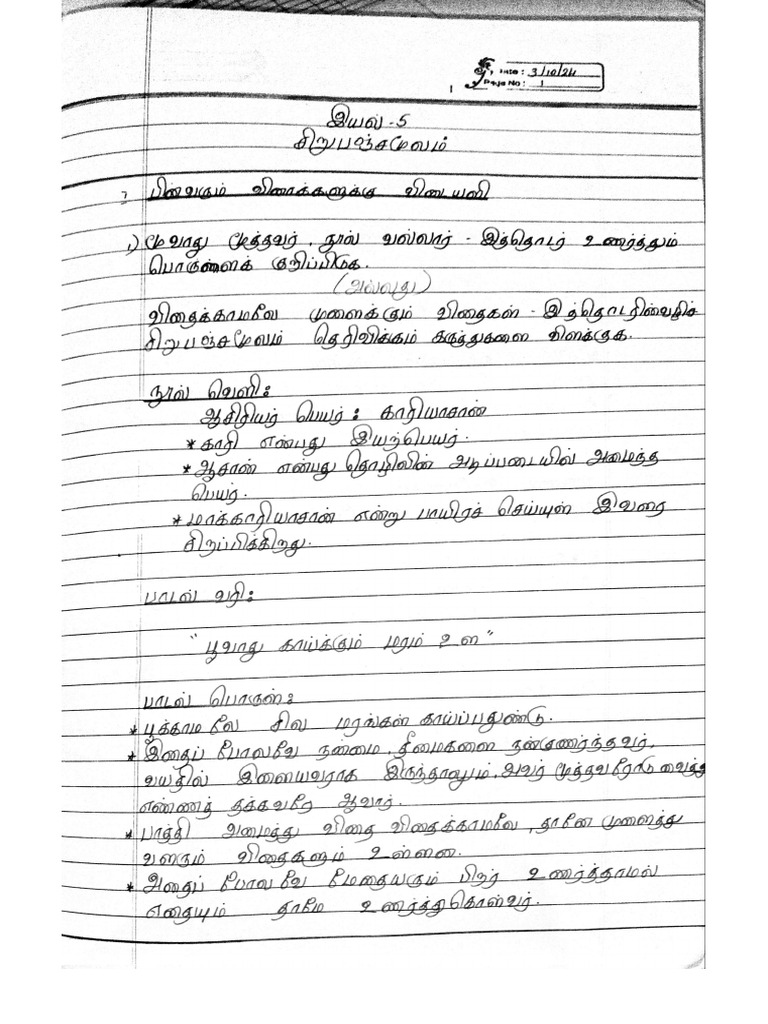 Date: 3/10/24
Page No: 1
இயல்-5
சிறுபஞ்சமூலம்
பின்வரும் வினாக்களுக்கு விடையளி
1) மூவாது மூத்தவர், நூல் வல்லார் - இத்தொடர் உணர்த்தும்
பொருளைக் குறிப்பிடுக.
(அல்லது)
விதைக்காமலே முளைக்கும் விதைகள் - இத்தொடரின்வழிச்
சிறுபஞ்சமூலம் தெரிவிக்கும் கருத்துகளை விளக்குக.
நூல் வெளி:
ஆசிரியர் பெயர்: காரியாசான்
* காரி என்பது இயற்பெயர்.
* ஆசான் என்பது தொழிலின் அடிப்படையில் அமைந்த
பெயர்.
* மாக்காரியாசான் என்று பாயிரச் செய்யுள் இவரை
சிறப்பிக்கிறது.
பாடல் வரி:
"பூவாது காய்க்கும் மரம் உள"
பாடல் பொருள்:
* பூக்காமலே சில மரங்கள் காய்ப்பதுண்டு.
* இதைப் போலவே நன்மை, தீமைகளை நன்குணர்ந்தவர்,
வயதில் இளையவராக இருந்தாலும், அவர் மூத்தவரோடு வைத்து
எண்ணத் தக்கவரே ஆவார்.
* பாத்தி அமைத்து விதை விதைக்காமலே, தானே முளைத்து
வளரும் விதைகளும் உள்ளன.
* அதைப் போலவே மேதையரும் பிறர் உணர்த்தாமல்
எதையும் தாமே உணர்ந்துகொள்வர்.